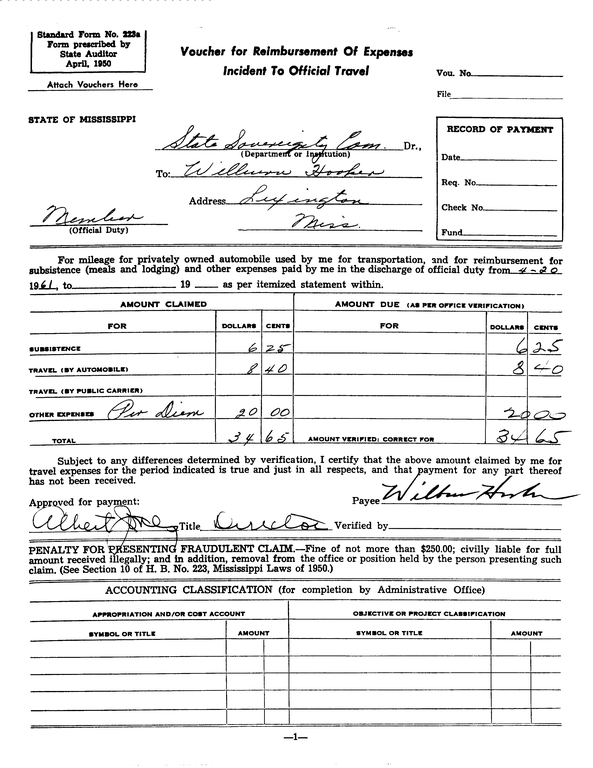 Standard Form No. 223a
Form prescribed by
State Auditor
April, 1950
Attach Vouchers Here
Voucher for Reimbursement Of Expenses
Incident To Official Travel
Vou. No.
File
STATE OF MISSISSIPPI
State Sovereignty Com. Dr.,
(Department or Institution)
To: Wilburn Hooker
Address Lexington
Miss.
Member
(Official Duty)
RECORD OF PAYMENT
Date
Req. No.
Check No.
Fund
For mileage for privately owned automobile used by me for transportation, and for reimbursement for
subsistence (meals and lodging) and other expenses paid by me in the discharge of official duty from 4-20
1961, to 19 as per itemized statement within.
AMOUNT CLAIMED AMOUNT DUE (AS PER OFFICE VERIFICATION)
FOR DOLLARS CENTS FOR DOLLARS CENTS
SUBSISTENCE 6 25 6 25
TRAVEL (BY AUTOMOBILE) 8 40 8 40
TRAVEL (BY PUBLIC CARRIER)
OTHER EXPENSES Per Diem 20 00 20 00
TOTAL 34 65 AMOUNT VERIFIED: CORRECT FOR 34 65
Subject to any differences determined by verification, I certify that the above amount claimed by me for
travel expenses for the period indicated is true and just in all respects, and that payment for any part thereof
has not been received.
Payee Wilburn Hooker
Approved for payment:
Albert Jones Title Director Verified by
PENALTY FOR PRESENTING FRAUDULENT CLAIM.—Fine of not more than $250.00; civilly liable for full
amount received illegally; and in addition, removal from the office or position held by the person presenting such
claim. (See Section 10 of H. B. No. 223, Mississippi Laws of 1950.)
ACCOUNTING CLASSIFICATION (for completion by Administrative Office)
APPROPRIATION AND/OR COST ACCOUNT OBJECTIVE OR PROJECT CLASSIFICATION
SYMBOL OR TITLE AMOUNT SYMBOL OR TITLE AMOUNT
—1—